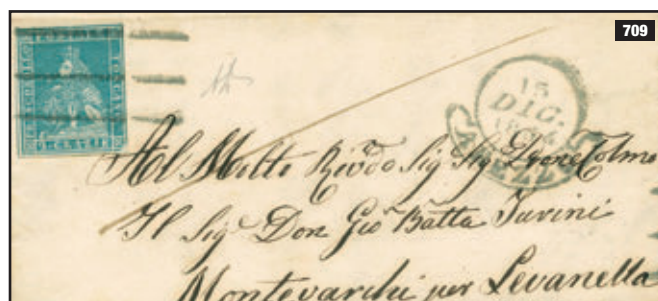 709
15
DIG.
AREZZO
Al Molto Rev:do Sig Sig Prone Colmo
Il Sig:e Don Gio: Batta Turini
Montevarchi per Levanella